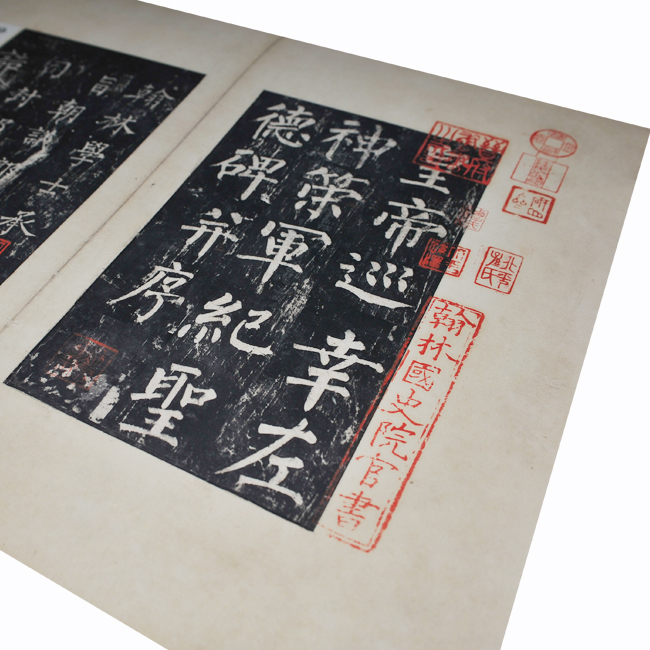 翰林國史院官書
皇帝巡幸左
神策軍紀聖
德碑并序
翰林學士承
旨朝議